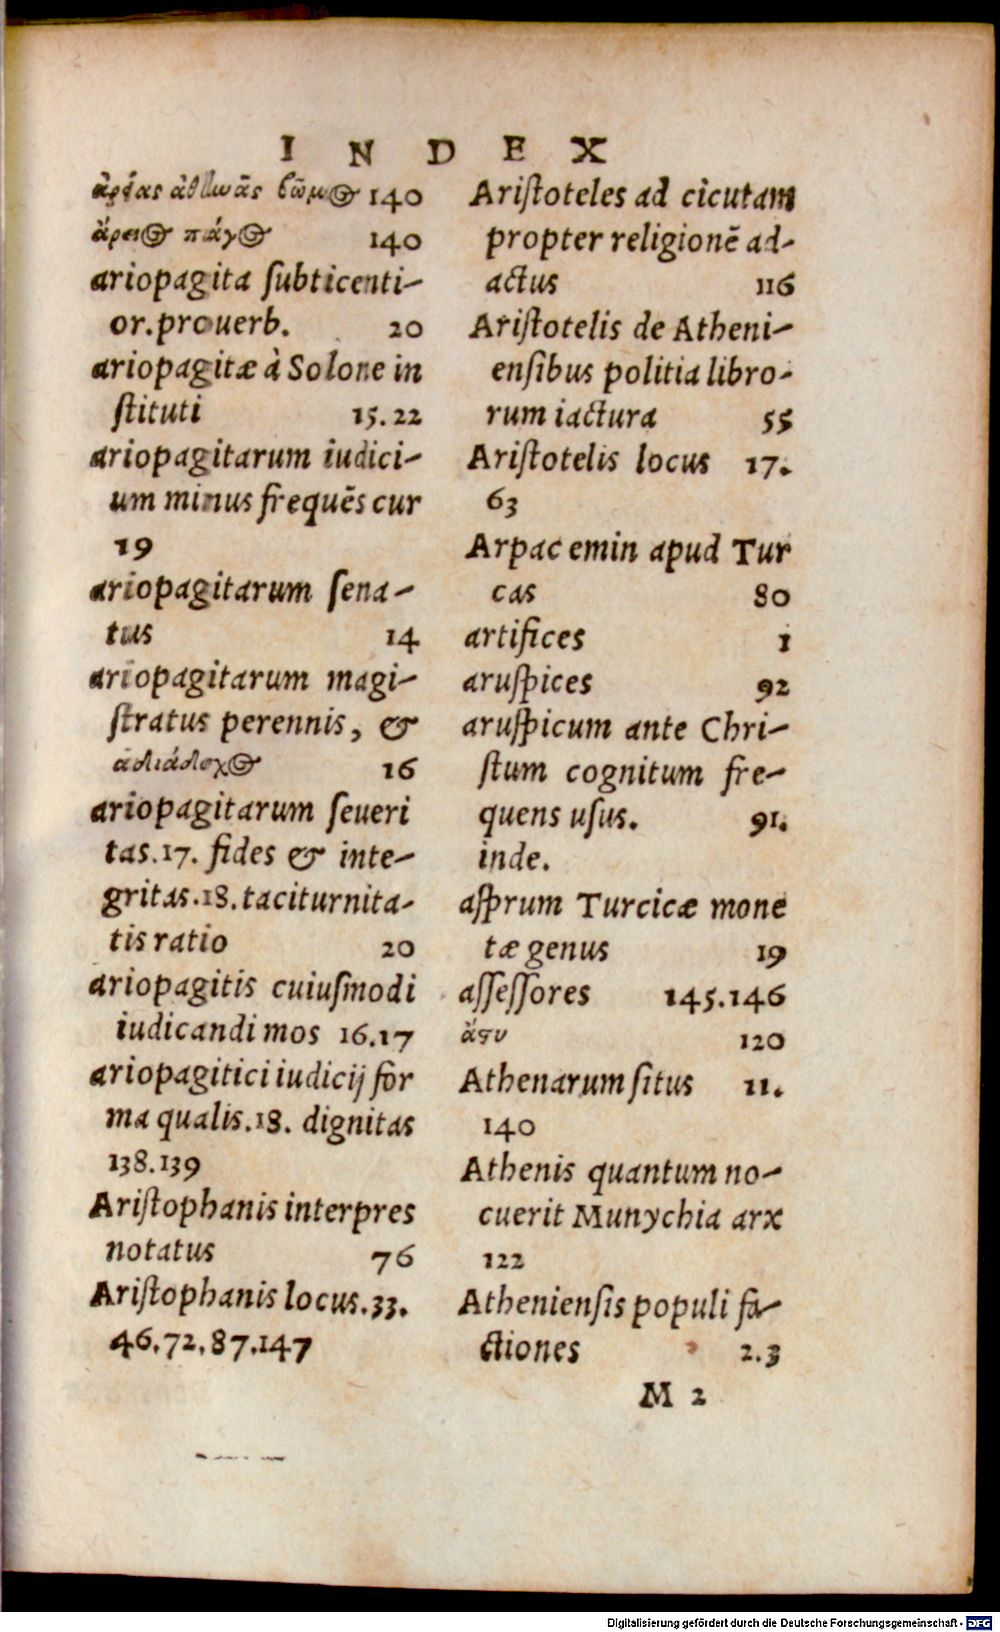 I N D E X
ἀρείας ἀθηνᾶς βῶμος 140
ἄρειος πάγος 140
ariopagita ſubticenti-
or.prouerb. 20
ariopagitæ à Solone in
ſtituti 15.22
ariopagitarum iudici-
um minus frequēs cur
19
ariopagitarum ſena-
tus 14
ariopagitarum magi-
ſtratus perennis, &
ἀδιάδοχος 16
ariopagitarum ſeueri
tas.17. fides & inte-
gritas.18.taciturnita-
tis ratio 20
ariopagitis cuiuſmodi
iudicandi mos 16.17
ariopagitici iudicij for
ma qualis.18. dignitas
138.139
Ariſtophanis interpres
notatus 76
Ariſtophanis locus.33.
46.72.87.147
Ariſtoteles ad cicutam
propter religionē ad-
actus 116
Ariſtotelis de Atheni-
enſibus politia libro-
rum iactura 55
Ariſtotelis locus 17.
63
Arpac emin apud Tur
cas 80
artifices 1
aruſpices 92
aruſpicum ante Chri-
ſtum cognitum fre-
quens uſus. 91.
inde.
aſprum Turcicæ mone
tæ genus 19
aſſeſſores 145.146
ἄστυ 120
Athenarum ſitus 11.
140
Athenis quantum no-
cuerit Munychia arx
122
Athenienſis populi fa-
ctiones 2.3
M 2
Digitalisierung gefördert durch die Deutsche Forschungsgemeinschaft - DFG